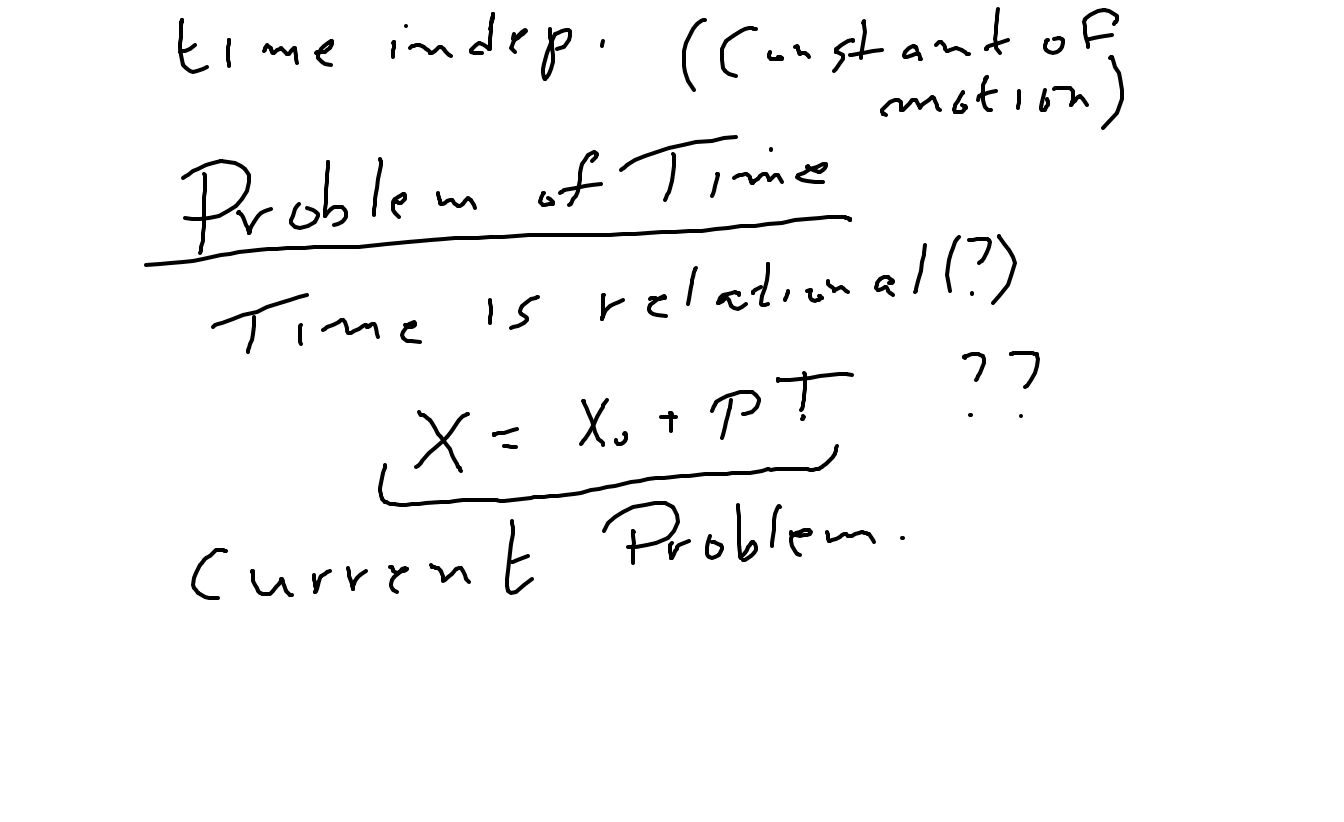 time indep. (Constant of
motion)
Problem of Time
Time is relational(?)
X = X₀ + PT ??
Current Problem.